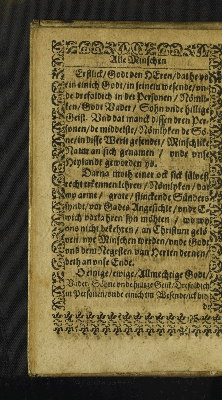 Alle Minschen
Erstlick / Godt den HEren / dat he yo
ein einich Godt / in seinem wesende / un-
de drefaldich in der Personen / Nömli-
ken / Godt Vader / Sohn unde hillige
Geist. Und dat manck dissen dren Per-
sonen / de middelste / Nömlyken de Sö-
ne / in disse Werlt gesendet / Minschlike
Natur an sick genamen / unde unse
Heylandt geworden ys.
Darna moth einer ock sick sülvest
recht erkennen lehren / Nömlyken / dat
wy arme / grote / stinckende Sünders
syndt / vor Gades Angesichte / unde E-
wich vorlahren syn möhten / wo wy
uns nicht bekehren / an Christum gelö-
ven / nye Minschen werden / unde Godt
uns dem Negesten van Herten deenen /
beth an unse Ende.
O einige / ewige / Allmechtige Godt /
Vader / Söhne unde hillige Geist / Drefaldich
in Personen / unde einich ym Wesende /
de